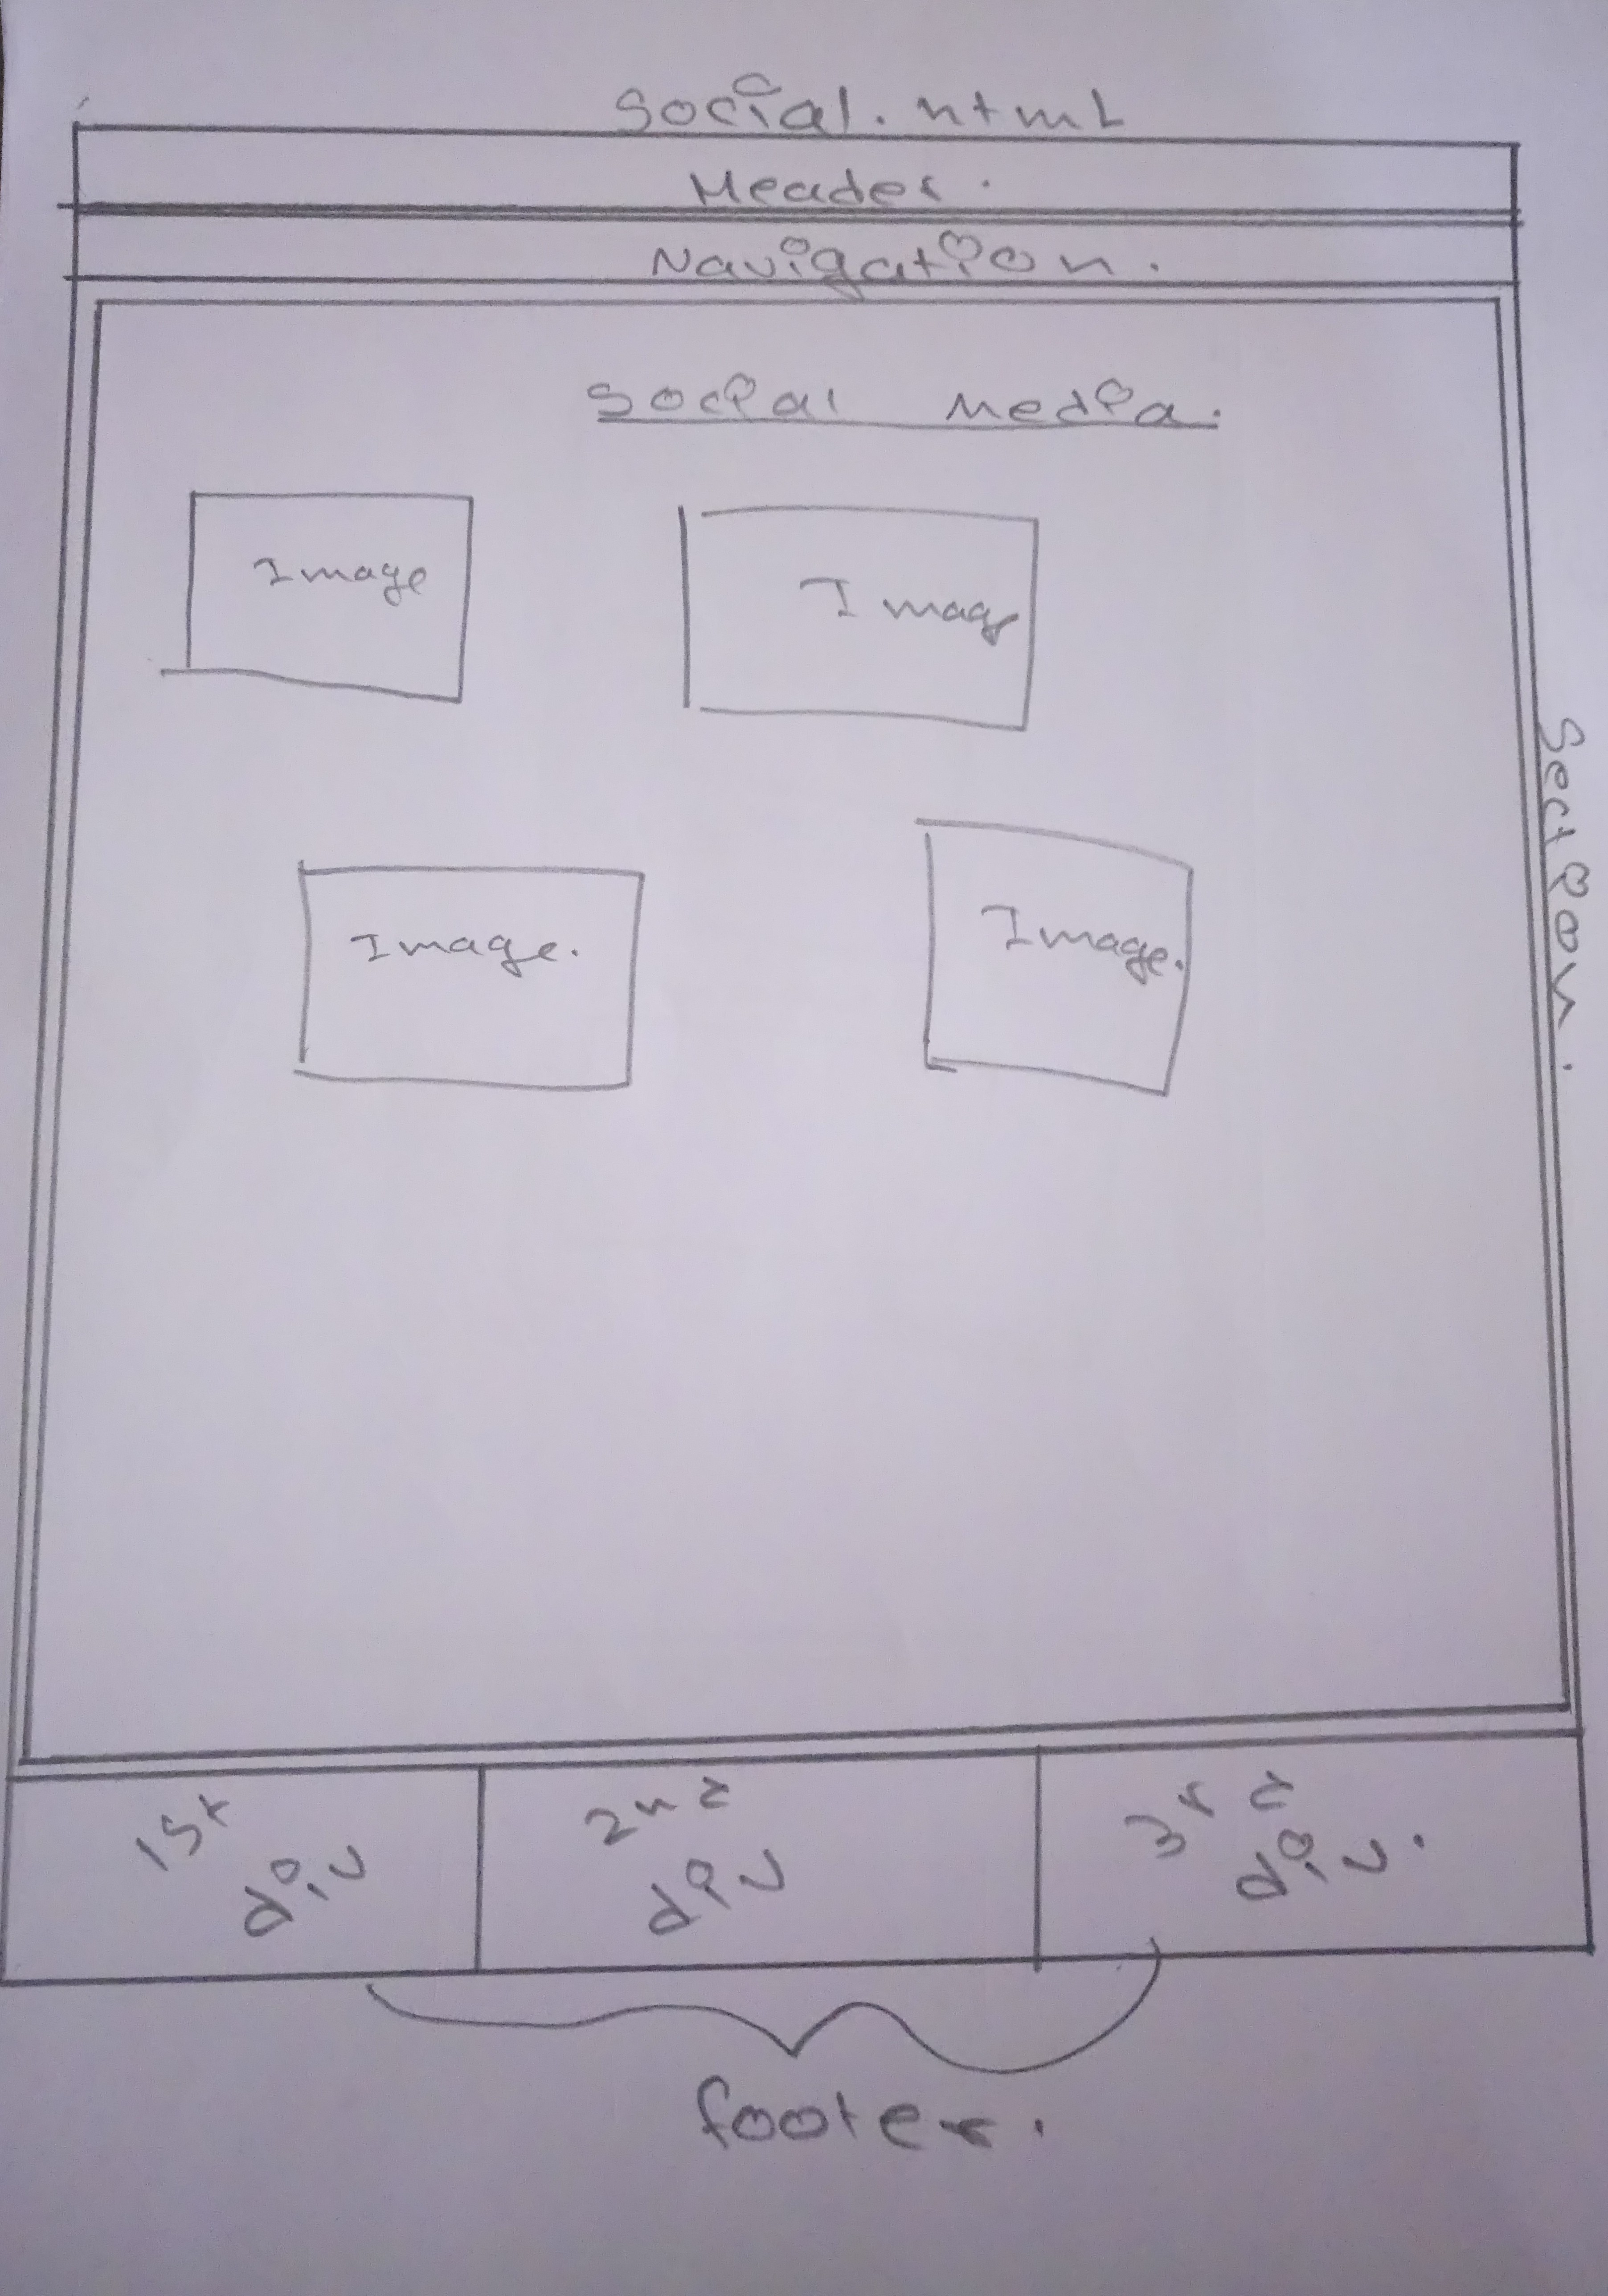 Social.html
Header.
Navigation.
Social Media.
Image
Imag
Image.
Image.
Section.
1st
div
2nd
div
3rd
div.
footer.